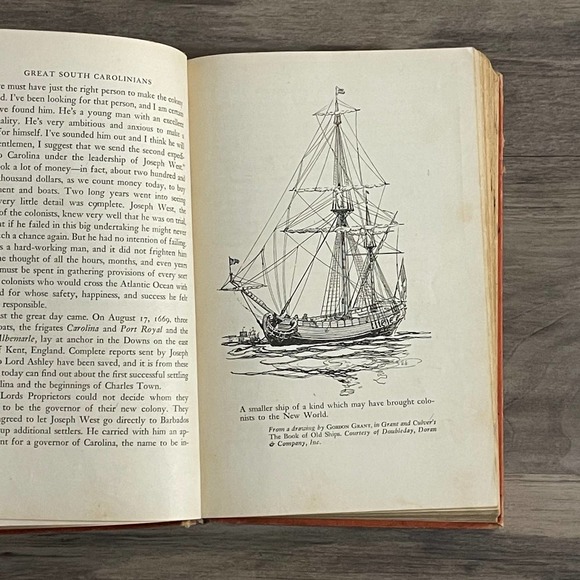 GREAT SOUTH CAROLINIANS
ve must have just the right person to make the colony
d. I've been looking for that person, and I am certain
ve found him. He's a young man with an excellent
ality. He's very ambitious and anxious to make a
for himself. I've sounded him out and I think he will
entlemen, I suggest that we send the second expedi-
o Carolina under the leadership of Joseph West."
ook a lot of money—in fact, about two hundred and
thousand dollars, as we count money today, to buy
ment and boats. Two long years went into seeing
very little detail was complete. Joseph West, the
of the colonists, knew very well that he was on trial,
at if he failed in this big undertaking he might never
ch a chance again. But he had no intention of failing.
s a hard-working man, and it did not frighten him
he thought of all the hours, months, and even years
must be spent in gathering provisions of every sort
colonists who would cross the Atlantic Ocean with
d for whose safety, happiness, and success he felt
responsible.
st the great day came. On August 17, 1669, three
oats, the frigates Carolina and Port Royal and the
Albemarle, lay at anchor in the Downs on the east
of Kent, England. Complete reports sent by Joseph
o Lord Ashley have been saved, and it is from these
today can find out about the first successful settling
lina and the beginnings of Charles Town.
Lords Proprietors could not decide whom they
to be the governor of their new colony. They
agreed to let Joseph West go directly to Barbados
up additional settlers. He carried with him an ap-
ent for a governor of Carolina, the name to be in-
A smaller ship of a kind which may have brought colo-
nists to the New World.
From a drawing by GORDON GRANT, in Grant and Culver's
The Book of Old Ships. Courtesy of Doubleday, Doran
& Company, Inc.